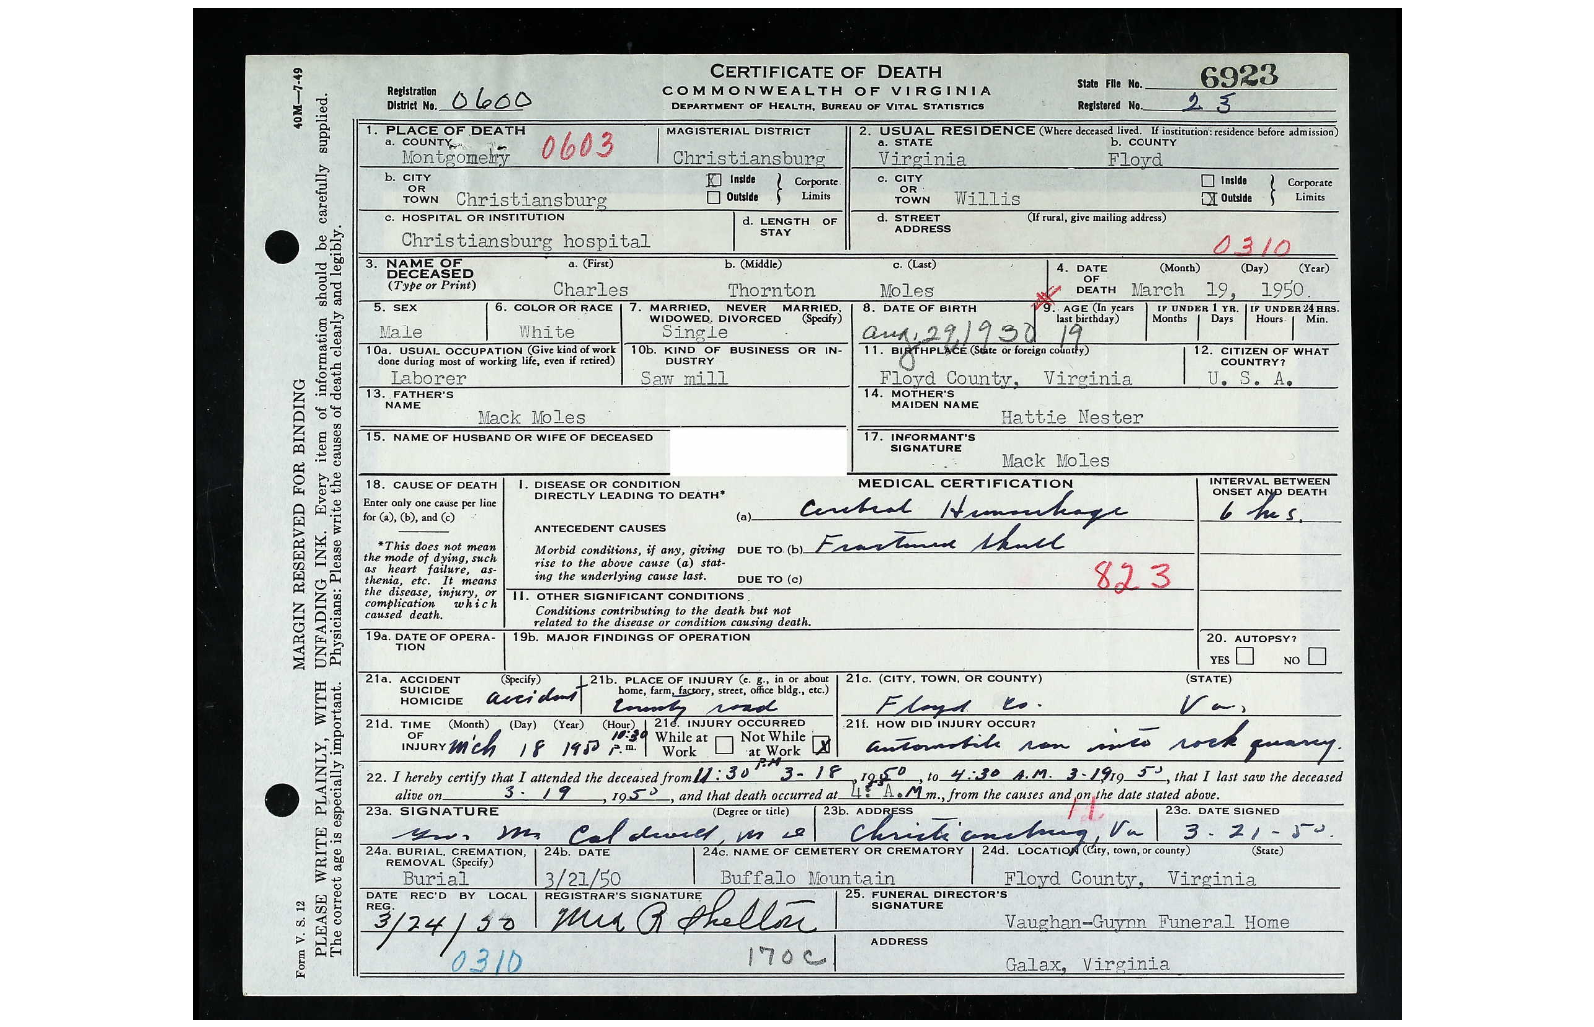 CERTIFICATE OF DEATH
COMMONWEALTH OF VIRGINIA
DEPARTMENT OF HEALTH, BUREAU OF VITAL STATISTICS
Registration District No. 0600
State File No. 6923
Registered No. 23
40M—7-49
MARGIN RESERVED FOR BINDING
PLEASE WRITE PLAINLY, WITH UNFADING INK. Every item of information should be carefully supplied.
The correct age is especially important. Physicians: Please write the causes of death clearly and legibly.
Form V. S. 12
1. PLACE OF DEATH
a. COUNTY Montgomery 0603
MAGISTERIAL DISTRICT Christiansburg
b. CITY OR TOWN Christiansburg
X Inside Outside Corporate Limits
c. HOSPITAL OR INSTITUTION Christiansburg hospital
d. LENGTH OF STAY
2. USUAL RESIDENCE (Where deceased lived. If institution: residence before admission)
a. STATE Virginia
b. COUNTY Floyd
c. CITY OR TOWN Willis
Inside X Outside Corporate Limits
d. STREET ADDRESS (If rural, give mailing address)
0310
3. NAME OF DECEASED (Type or Print)
a. (First) Charles
b. (Middle) Thornton
c. (Last) Moles
4. DATE OF DEATH (Month) (Day) (Year) March 19, 1950.
5. SEX Male
6. COLOR OR RACE White
7. MARRIED, NEVER MARRIED, WIDOWED, DIVORCED (Specify) Single
8. DATE OF BIRTH Aug, 29, 1930
9. AGE (In years last birthday) 19
IF UNDER 1 YR. Months Days
IF UNDER 24 HRS. Hours Min.
10a. USUAL OCCUPATION (Give kind of work done during most of working life, even if retired) Laborer
10b. KIND OF BUSINESS OR INDUSTRY Saw mill
11. BIRTHPLACE (State or foreign country) Floyd County, Virginia
12. CITIZEN OF WHAT COUNTRY? U. S. A.
13. FATHER'S NAME Mack Moles
14. MOTHER'S MAIDEN NAME Hattie Nester
15. NAME OF HUSBAND OR WIFE OF DECEASED
17. INFORMANT'S SIGNATURE Mack Moles
18. CAUSE OF DEATH
Enter only one cause per line for (a), (b), and (c)
*This does not mean the mode of dying, such as heart failure, asthenia, etc. It means the disease, injury, or complication which caused death.
MEDICAL CERTIFICATION
INTERVAL BETWEEN ONSET AND DEATH
I. DISEASE OR CONDITION DIRECTLY LEADING TO DEATH*
(a) Cerebral Hemorrhage 6 hrs.
ANTECEDENT CAUSES
Morbid conditions, if any, giving rise to the above cause (a) stating the underlying cause last.
DUE TO (b) Fractured skull
DUE TO (c)
823
II. OTHER SIGNIFICANT CONDITIONS
Conditions contributing to the death but not related to the disease or condition causing death.
19a. DATE OF OPERATION
19b. MAJOR FINDINGS OF OPERATION
20. AUTOPSY? YES NO
21a. ACCIDENT SUICIDE HOMICIDE (Specify) accident
21b. PLACE OF INJURY (e. g., in or about home, farm, factory, street, office bldg., etc.) County road
21c. (CITY, TOWN, OR COUNTY) (STATE) Floyd Co. Va.
21d. TIME OF INJURY (Month) (Day) (Year) (Hour) Mch 18 1950 10:30 P.m.
21e. INJURY OCCURRED While at Work Not While at Work X
21f. HOW DID INJURY OCCUR? automobile ran into rock quarry.
22. I hereby certify that I attended the deceased from 11:30 PM 3-18, 1950, to 4:30 A.M. 3-19 1950, that I last saw the deceased
alive on 3-19, 1950, and that death occurred at 4: A.M m., from the causes and on the date stated above.
23a. SIGNATURE (Degree or title) Wm. M. Caldwell, M D
23b. ADDRESS Christiansburg, Va
23c. DATE SIGNED 3-21-50.
24a. BURIAL, CREMATION, REMOVAL (Specify) Burial
24b. DATE 3/21/50
24c. NAME OF CEMETERY OR CREMATORY Buffalo Mountain
24d. LOCATION (City, town, or county) (State) Floyd County, Virginia
DATE REC'D BY LOCAL REG. 3/24/50
REGISTRAR'S SIGNATURE Mrs R Shelton
25. FUNERAL DIRECTOR'S SIGNATURE Vaughan-Guynn Funeral Home
ADDRESS Galax, Virginia
0310
170C